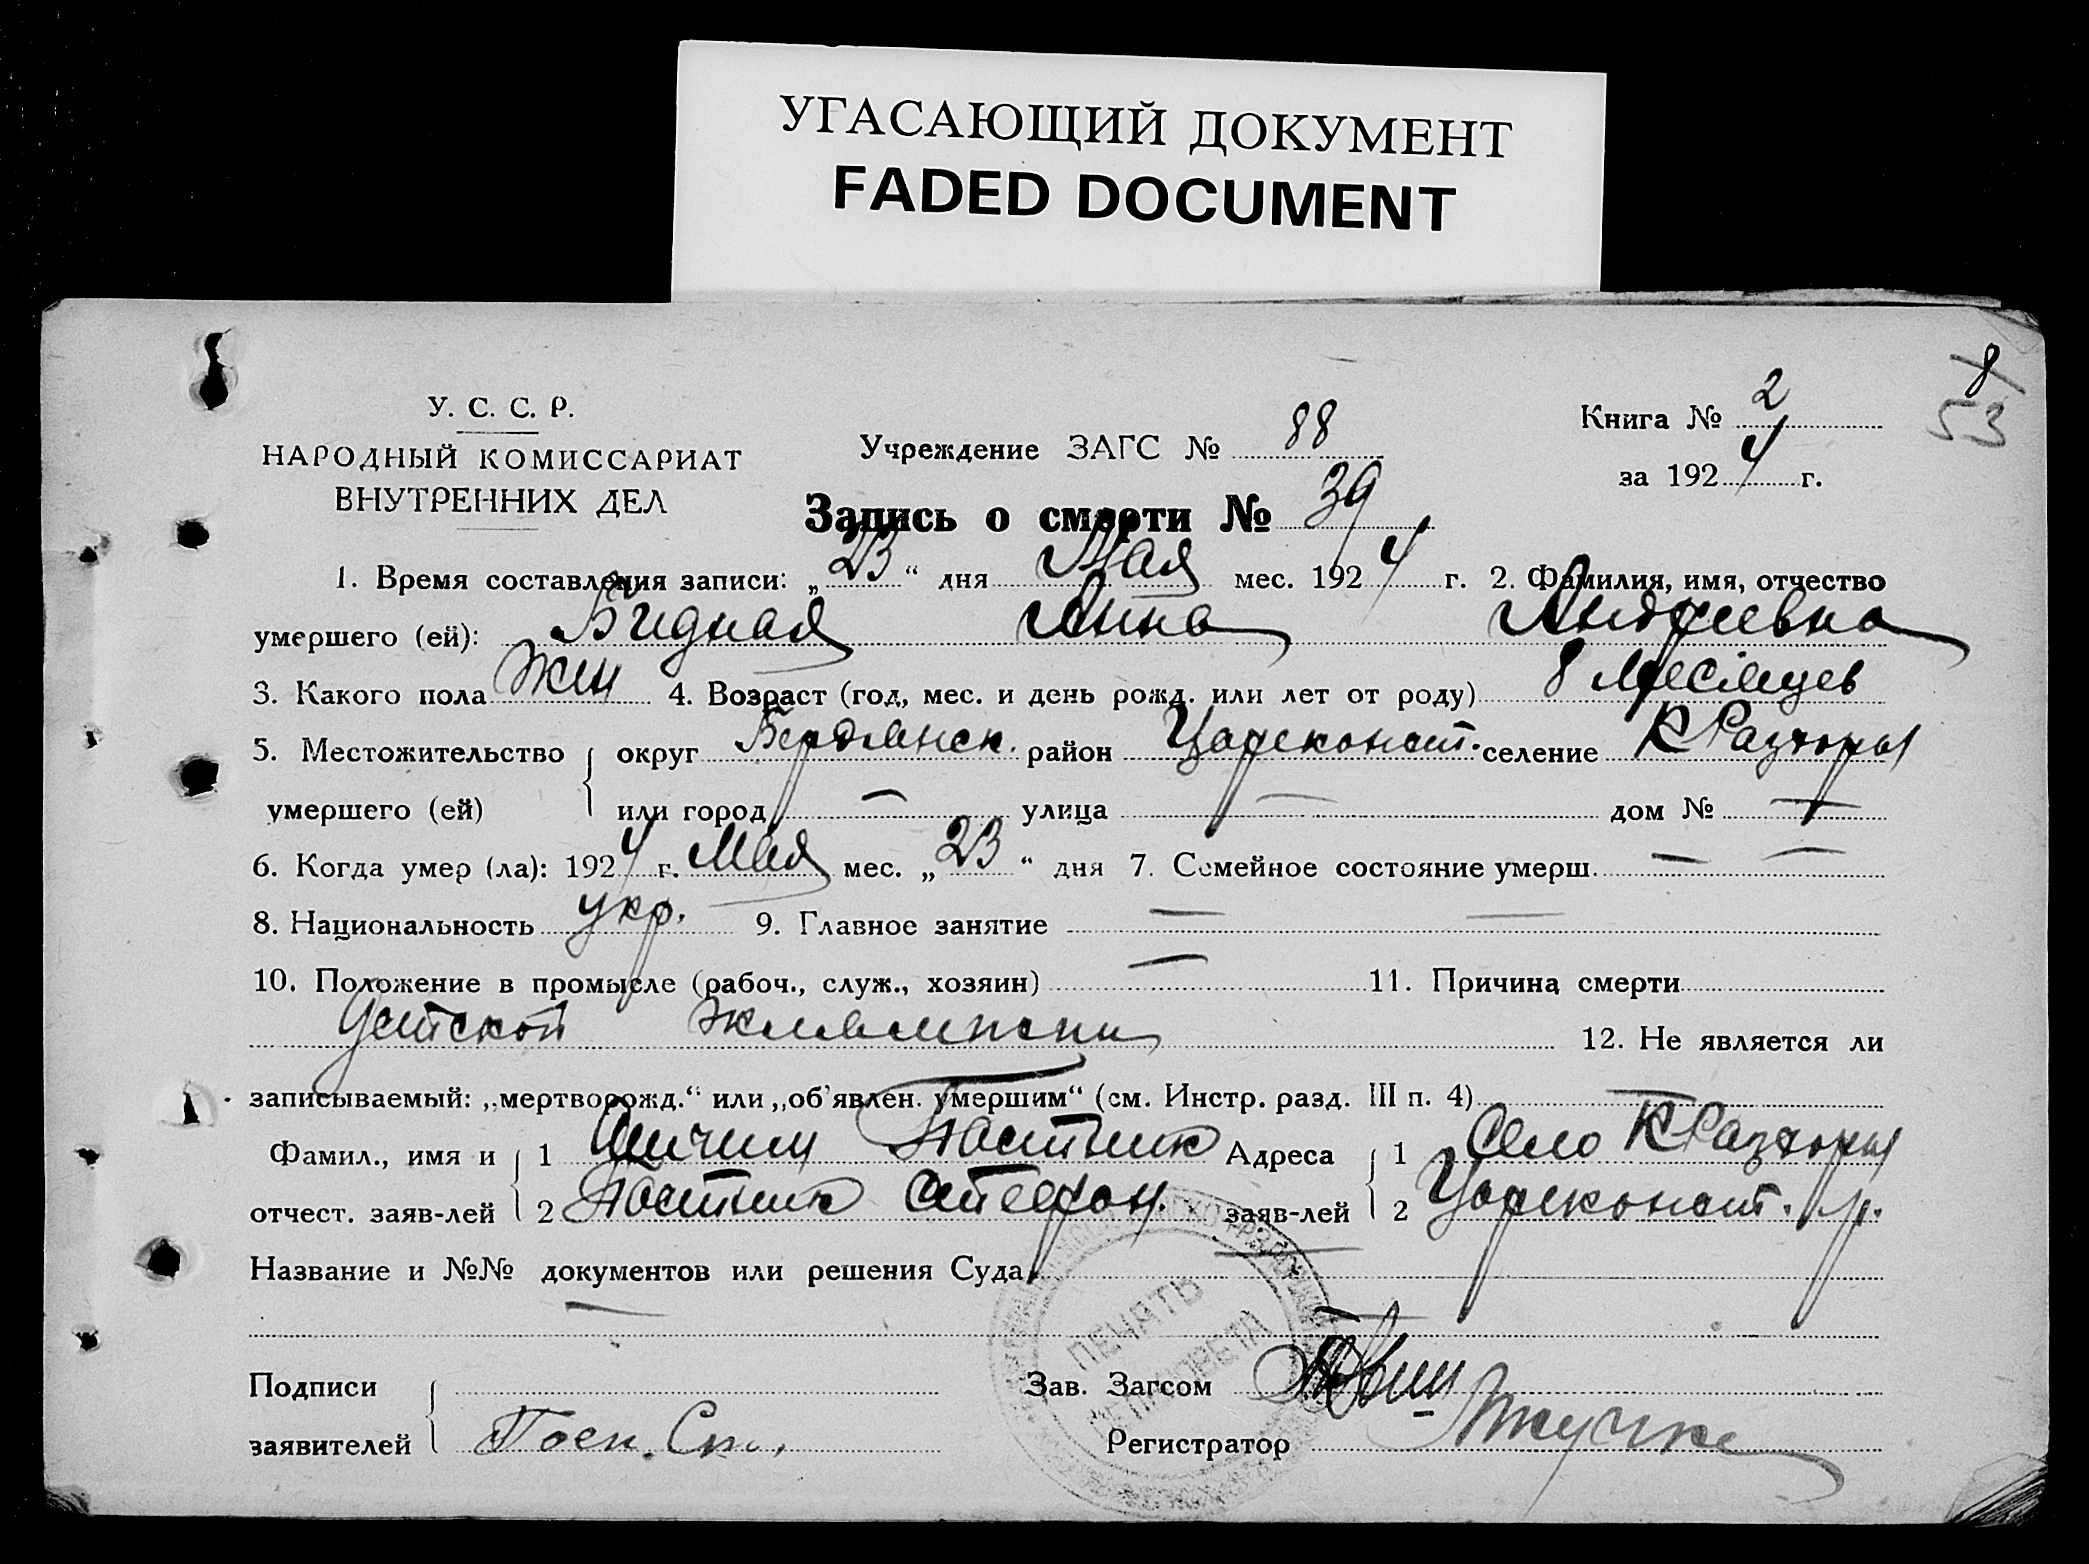 УГАСАЮЩИЙ ДОКУМЕНТ
FADED DOCUMENT
8
53
У. С. С. Р.
НАРОДНЫЙ КОМИССАРИАТ
ВНУТРЕННИХ ДЕЛ
Учреждение ЗАГС № 88
Книга № 2
за 1924 г.
Запись о смерти № 39
1. Время составления записи: „23“ дня Мая мес. 1924 г. 2. Фамилия, имя, отчество
умершего (ей): Бидная Анна Андреевна
3. Какого пола жен 4. Возраст (год, мес. и день рожд. или лет от роду) 8 месяцев
5. Местожительство { округ Бердянск. район Цареконст. селение К Разкоры
умершего (ей) или город — улица — дом № —
6. Когда умер (ла): 1924 г. Мая мес. „23“ дня 7. Семейное состояние умерш. — —
8. Национальность укр. 9. Главное занятие — —
10. Положение в промысле (рабоч., служ., хозяин) — 11. Причина смерти
детской эклампсии 12. Не является ли
записываемый: „мертворожд.“ или „об'явлен. умершим“ (см. Инстр. разд. III п. 4) —
Фамил., имя и { 1 Постник Адреса { 1 Село К Разкоры
отчест. заяв-лей 2 Постник Стефан. заяв-лей 2 Цареконст. р.
Название и №№ документов или решения Суда —
—
ПЕЧАТЬ
Подписи { Зав. Загсом
заявителей Посн. Ст. Регистратор